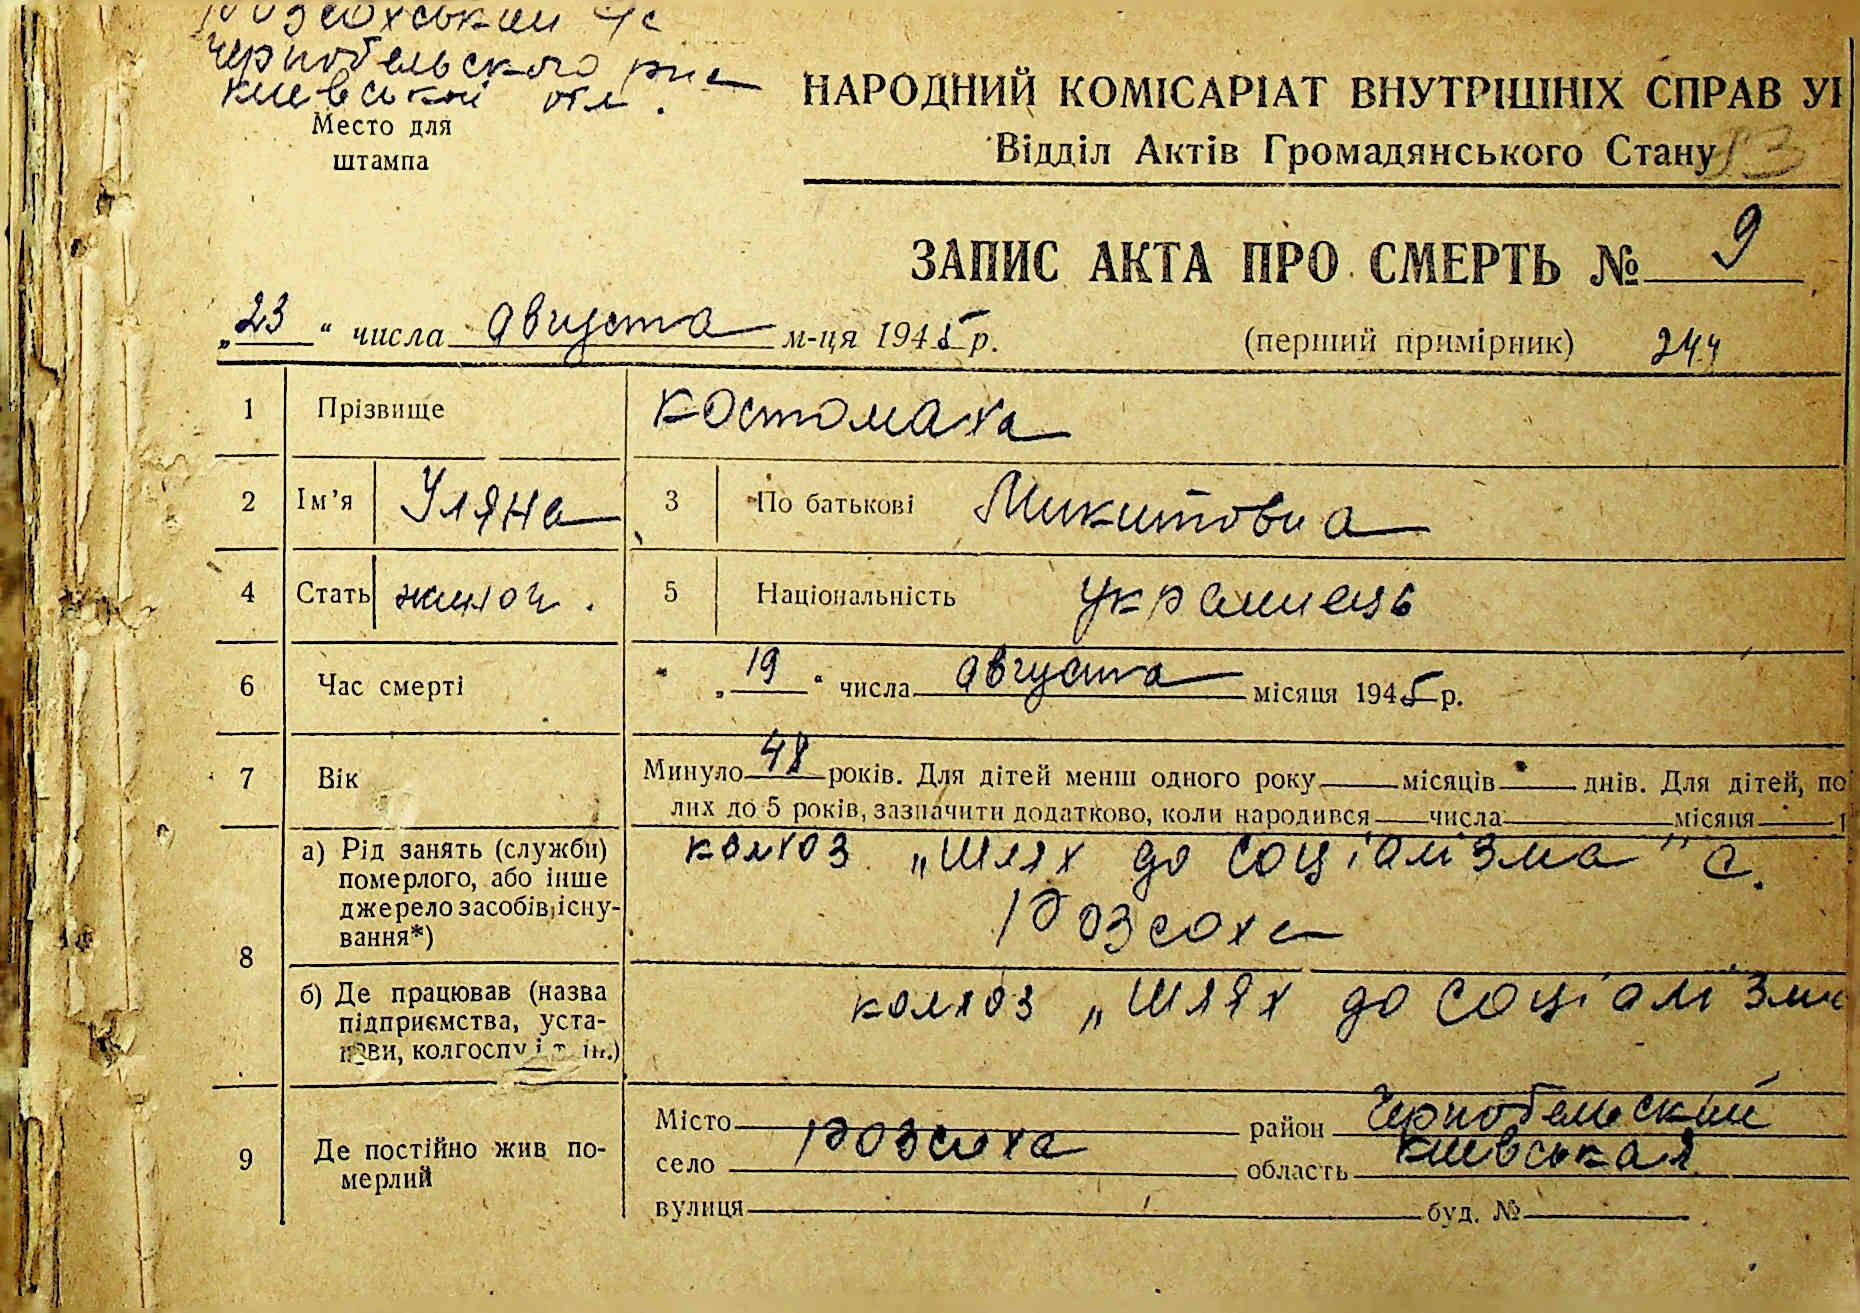 Розсохський с/с
Чернобельского рна
Киевськой обл.
Место для
штампа
НАРОДНИЙ КОМІСАРІАТ ВНУТРІШНІХ СПРАВ
Відділ Актів Громадянського Стану 13
ЗАПИС АКТА ПРО СМЕРТЬ № 9
„23“ числа августа м-ця 1945 р. (перший примірник) 244
1 Прізвище Костомаха
2 Ім’я Уляна 3 По батькові Микитовна
4 Стать жиноч. 5 Національність украинець
6 Час смерті „19“ числа августа місяця 1945 р.
7 Вік Минуло 48 років. Для дітей менш одного року місяців днів. Для дітей, по
лих до 5 років, зазначити додатково, коли народився числа місяця
8 а) Рід занять (служби)
померлого, або інше
джерело засобів існу-
вання*)
колхоз „Шлях до Соціалізма“ с.
Розсоха
б) Де працював (назва
підприємства, уста-
нови, колгоспу і т. ін.)
колхоз „Шлях до Соціалізма
9 Де постійно жив по-
мерлий
Місто район Чернобельский
село Розсоха область Киевськая
вулиця буд. №